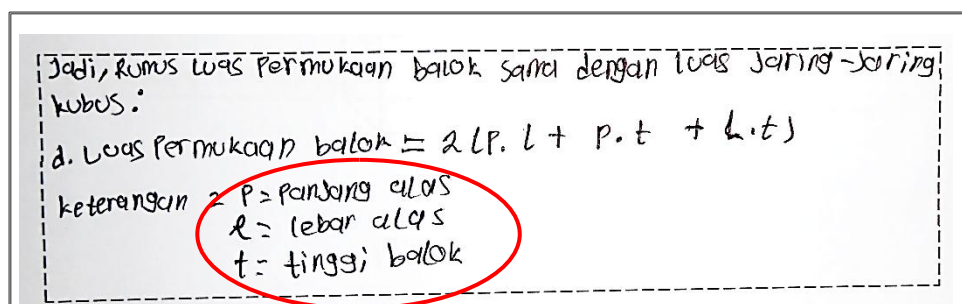 Jadi, Rumus luas Permukaan balok sama dengan luas Jaring-Jaring
kubus:
d. Luas Permukaan balok = 2(P. l + P. t + L. t)
keterangan = P = Panjang alas
l = lebar alas
t = tinggi balok